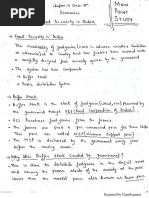 Chapter-4 Class-9th
Economics
Food Security in India
MAIN
POINT
STUDY
Food Security in India
The availability of foodgrains (even in adverse weather condition
or otherwise) at the country level has further been ensured with
a carefully designed food security system by the government
The system has two components
Buffer Stock
Public distribution system
Buffer Stock
Buffer Stock is the stock of food grains (wheat, rice) procured by
the government through FCI (Food corporation of India).
FCI Purchases food grains from the
The farmers are paid a pre-announced price for their crops
This price is called Minimum support price
The MSP is declared by the government every year
Why this Buffer stock Created by government?
To distribute food grains in the deficit areas
and among the poorer strata of the society at
the price lower than the market price
Scanned by CamScanner